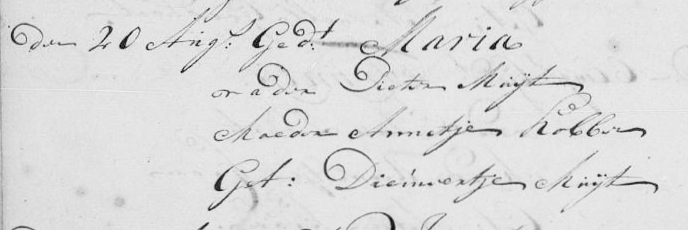 Den 20 Aug:t Ged:t Maria
vader Pieter Muijt
Moeder Annetje Kobber
Get: Dieuwertje Muijt